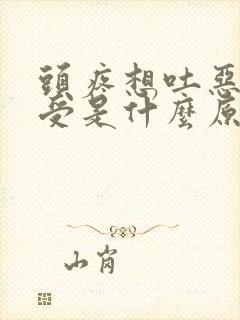 頭疼想吐惡
受是什麼原
山肖